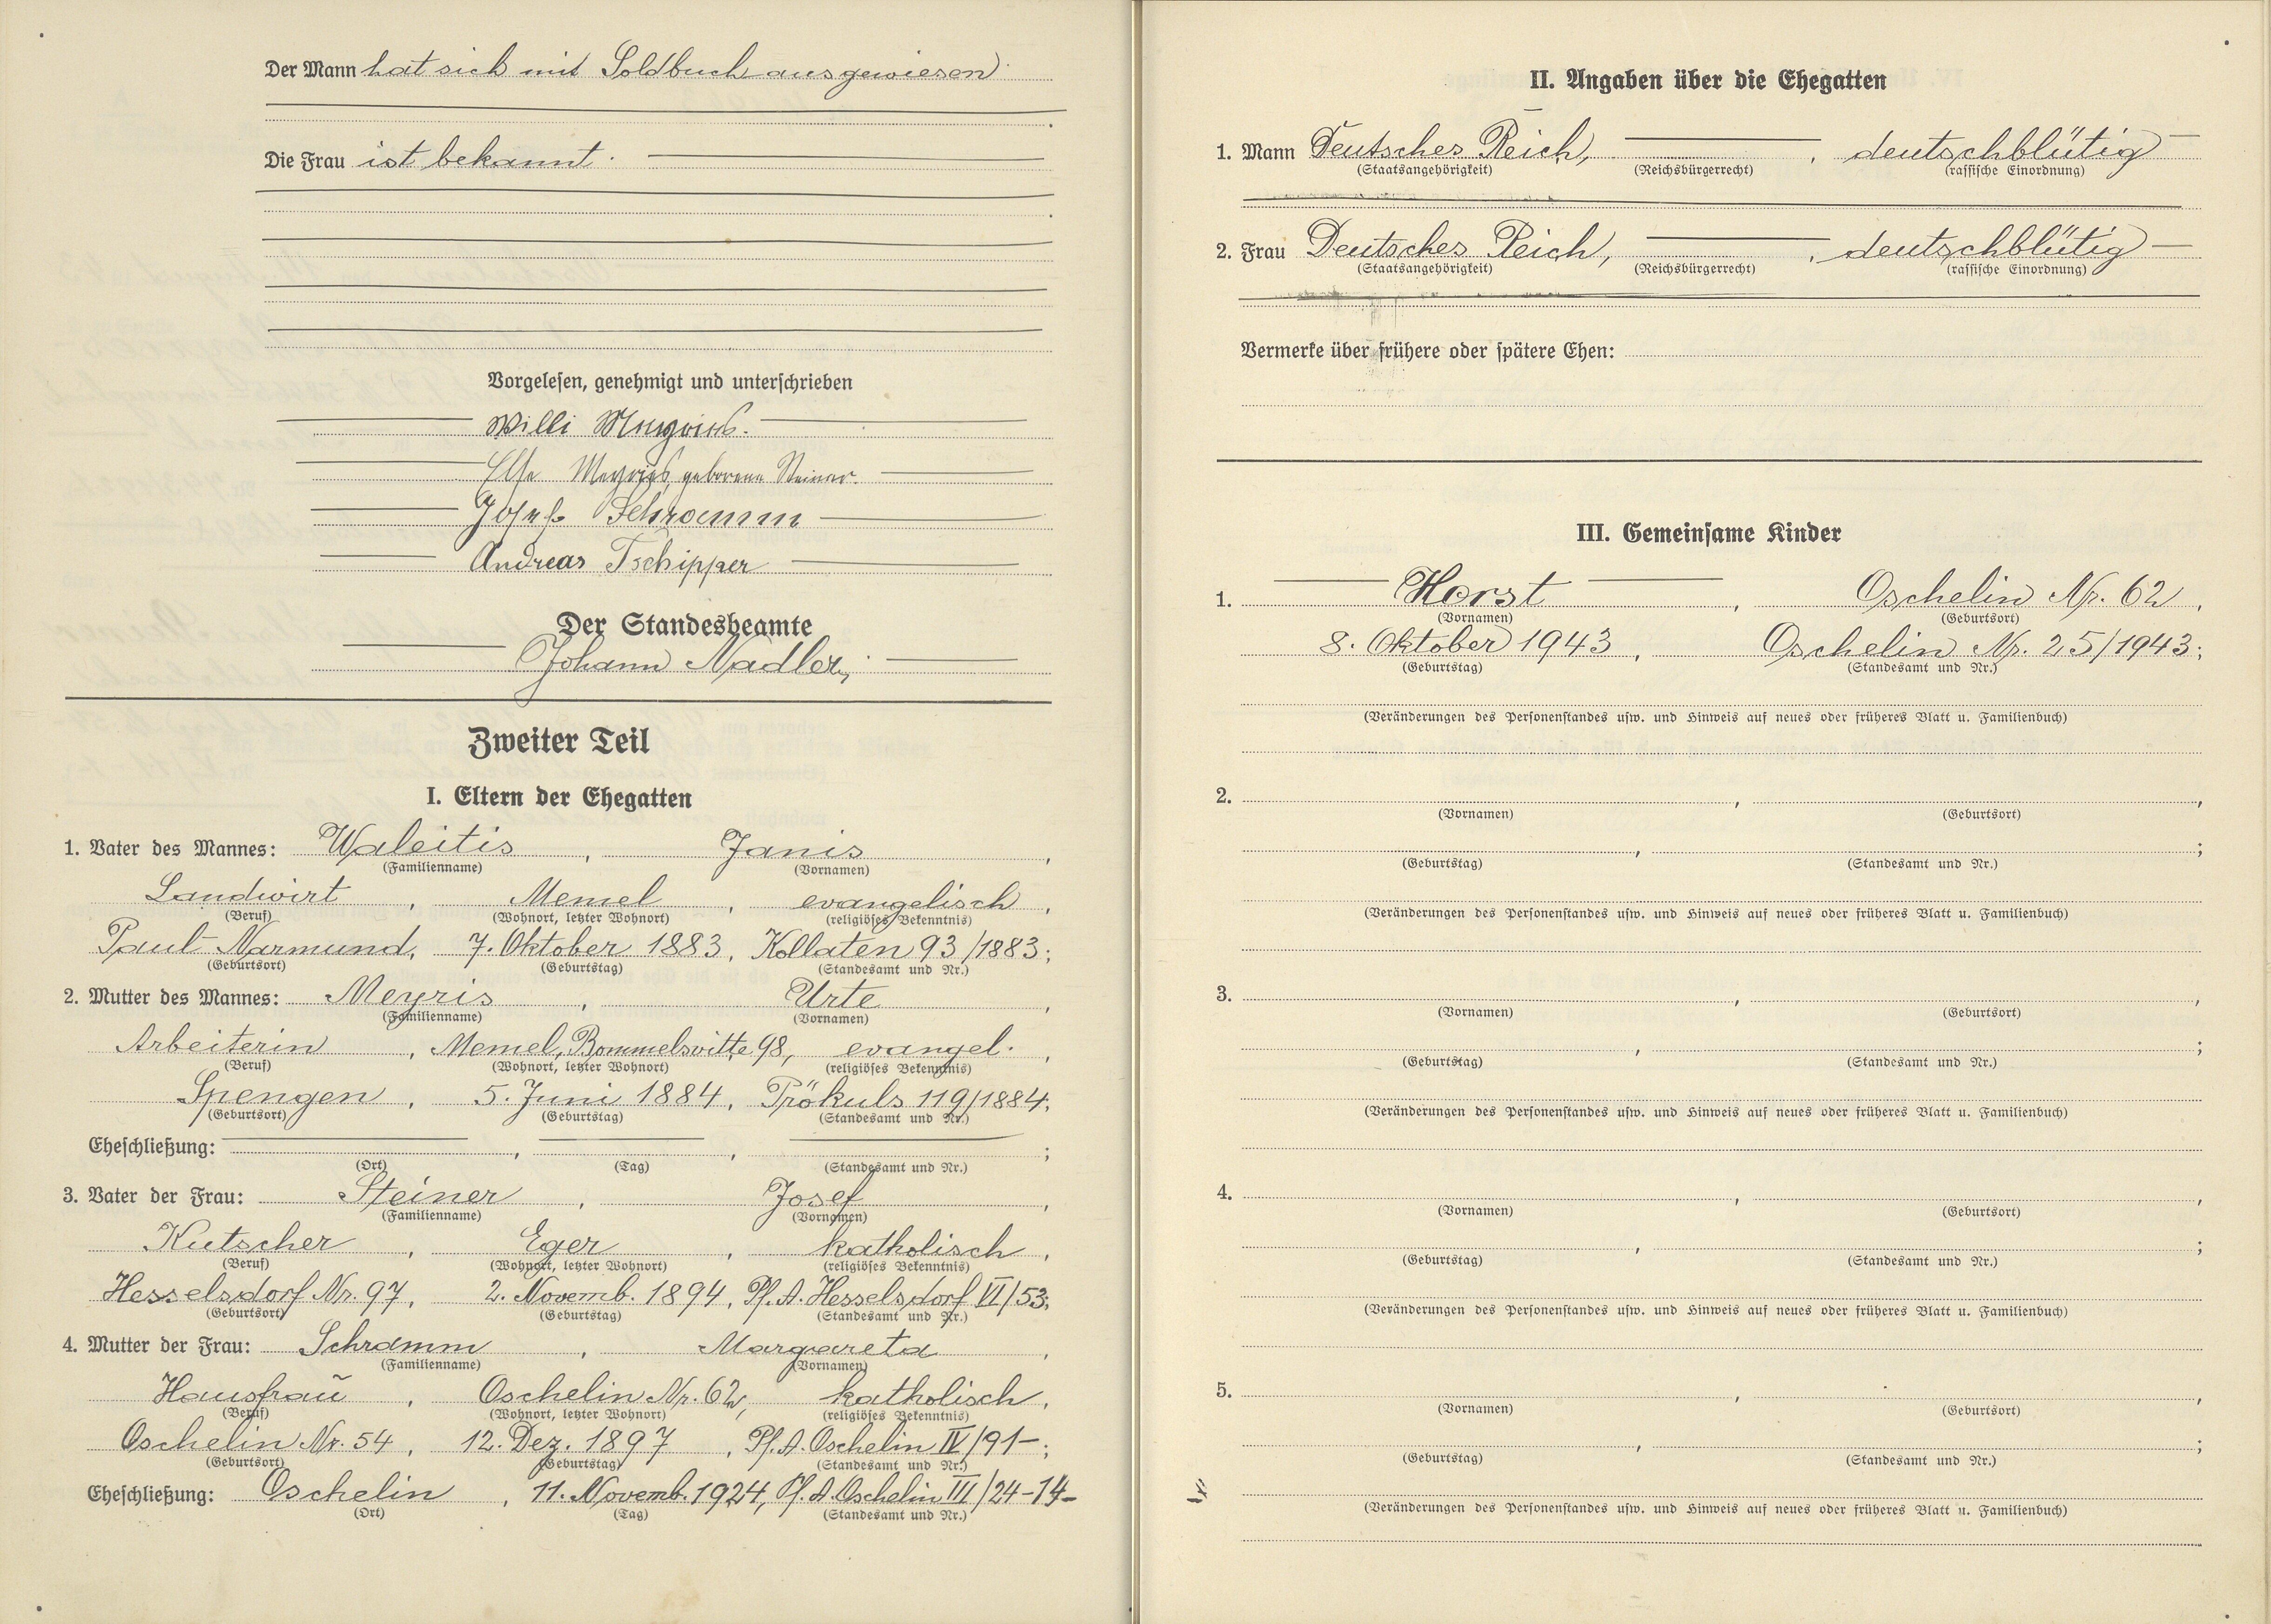 Der Mann hat sich mit Soldbuch ausgewiesen
Die Frau ist bekannt.
Vorgelesen, genehmigt und unterschrieben
Willi Meyries.
Else Meyries, geborene Steiner.
Josef Schramm
Andreas Tschipper
Der Standesbeamte
Johann Nadler,
Zweiter Teil
I. Eltern der Ehegatten
1. Vater des Mannes: Waleitis, Janis,
(Familienname) (Vornamen)
Landwirt, Memel, evangelisch,
(Beruf) (Wohnort, letzter Wohnort) (religiöses Bekenntnis)
Paul-Narmund, 7. Oktober 1883, Kollaten 93/1883;
(Geburtsort) (Geburtstag) (Standesamt und Nr.)
2. Mutter des Mannes: Meyris, Urte,
(Familienname) (Vornamen)
Arbeiterin, Memel, Bommelsvitte 98, evangel.,
(Beruf) (Wohnort, letzter Wohnort) (religiöses Bekenntnis)
Spengen, 5. Juni 1884, Prökuls 119/1884;
(Geburtsort) (Geburtstag) (Standesamt und Nr.)
Eheschließung: , , ;
(Ort) (Tag) (Standesamt und Nr.)
3. Vater der Frau: Steiner, Josef,
(Familienname) (Vornamen)
Kutscher, Eger, katholisch,
(Beruf) (Wohnort, letzter Wohnort) (religiöses Bekenntnis)
Hesselsdorf Nr. 97, 2. Novemb. 1894, Pf. A. Hesselsdorf VI/53;
(Geburtsort) (Geburtstag) (Standesamt und Nr.)
4. Mutter der Frau: Schramm, Margareta,
(Familienname) (Vornamen)
Hausfrau, Oschelin Nr. 62, katholisch,
(Beruf) (Wohnort, letzter Wohnort) (religiöses Bekenntnis)
Oschelin Nr. 54, 12. Dez. 1897, Pf. A. Oschelin IV/91-;
(Geburtsort) (Geburtstag) (Standesamt und Nr.)
Eheschließung: Oschelin, 11. Novemb. 1924, Pf. A. Oschelin III/24-14-
(Ort) (Tag) (Standesamt und Nr.)
II. Angaben über die Ehegatten
1. Mann Deutsches Reich, , deutschblütig
(Staatsangehörigkeit) (Reichsbürgerrecht) (rassische Einordnung)
2. Frau Deutsches Reich, , deutschblütig
(Staatsangehörigkeit) (Reichsbürgerrecht) (rassische Einordnung)
Vermerke über frühere oder spätere Ehen:
III. Gemeinsame Kinder
1. Horst, Oschelin Nr. 62,
(Vornamen) (Geburtsort)
8. Oktober 1943, Oschelin Nr. 25/1943;
(Geburtstag) (Standesamt und Nr.)
(Veränderungen des Personenstandes usw. und Hinweis auf neues oder früheres Blatt u. Familienbuch)
2. , ,
(Vornamen) (Geburtsort)
, ;
(Geburtstag) (Standesamt und Nr.)
(Veränderungen des Personenstandes usw. und Hinweis auf neues oder früheres Blatt u. Familienbuch)
3. , ,
(Vornamen) (Geburtsort)
, ;
(Geburtstag) (Standesamt und Nr.)
(Veränderungen des Personenstandes usw. und Hinweis auf neues oder früheres Blatt u. Familienbuch)
4. , ,
(Vornamen) (Geburtsort)
, ;
(Geburtstag) (Standesamt und Nr.)
(Veränderungen des Personenstandes usw. und Hinweis auf neues oder früheres Blatt u. Familienbuch)
5. , ,
(Vornamen) (Geburtsort)
, ;
(Geburtstag) (Standesamt und Nr.)
(Veränderungen des Personenstandes usw. und Hinweis auf neues oder früheres Blatt u. Familienbuch)